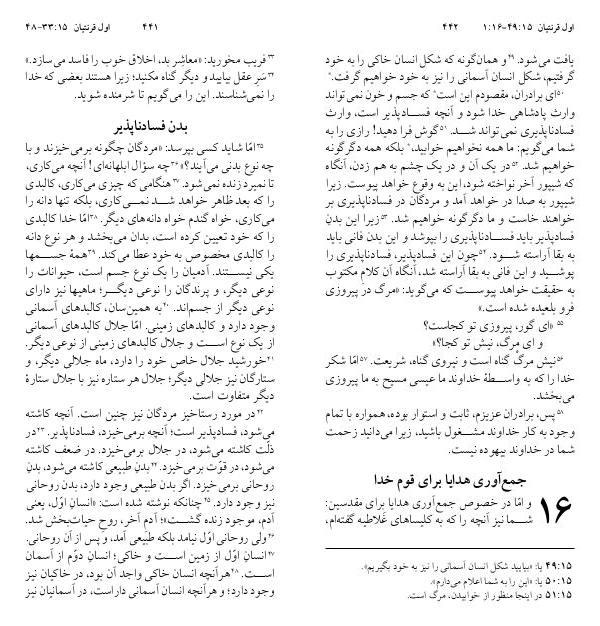 اول قرنتیان ۱۵:‏۳۳-۴۸
۴۴۱
۳۳فریب مخورید: «معاشِر بد، اخلاق خوب را فاسد می‌سازد.»
۳۴سَرِ عقل بیایید و دیگر گناه مکنید؛ زیرا هستند بعضی که خدا
را نمی‌شناسند. این را می‌گویم تا شرمنده شوید.
بدن فسادناپذیر
۳۵امّا شاید کسی بپرسد: «مردگان چگونه برمی‌خیزند و با
چه نوع بدنی می‌آیند؟» ۳۶چه سؤال ابلهانه‌ای! آنچه می‌کاری،
تا نمیرد زنده نمی‌شود. ۳۷هنگامی که چیزی می‌کاری، کالبدی
را که بعد ظاهر خواهد شد نمی‌کاری، بلکه تنها دانه را
می‌کاری، خواه گندم خواه دانه‌های دیگر. ۳۸امّا خدا کالبدی
را که خود تعیین کرده است، بدان می‌بخشد و هر نوع دانه
را کالبدی مخصوص به خود عطا می‌کند. ۳۹همهٔ جسمها
یکی نیستند. آدمیان را یک نوع جسم است، حیوانات را
نوعی دیگر، و پرندگان را نوعی دیگر؛ ماهیها نیز دارای
نوعی دیگر از جسم‌اند. ۴۰به همین‌سان، کالبدهای آسمانی
وجود دارد و کالبدهای زمینی. امّا جلال کالبدهای آسمانی
از یک نوع است و جلال کالبدهای زمینی از نوعی دیگر.
۴۱خورشید جلال خاص خود را دارد، ماه جلالی دیگر، و
ستارگان نیز جلالی دیگر؛ جلال هر ستاره نیز با جلال ستارهٔ
دیگر متفاوت است.
۴۲در مورد رستاخیز مردگان نیز چنین است. آنچه کاشته
می‌شود، فسادپذیر است؛ آنچه برمی‌خیزد، فسادناپذیر. ۴۳در
ذلّت کاشته می‌شود، در جلال برمی‌خیزد. در ضعف کاشته
می‌شود، در قوّت برمی‌خیزد. ۴۴بدنِ طبیعی کاشته می‌شود، بدنِ
روحانی برمی‌خیزد. اگر بدن طبیعی وجود دارد، بدن روحانی
نیز وجود دارد. ۴۵چنانکه نوشته شده است: «انسانِ اوّل، یعنی
آدم، موجود زنده گشت»؛ آدمِ آخر، روحِ حیات‌بخش شد.
۴۶ولی روحانی اوّل نیامد بلکه طبیعی آمد، و پس از آن روحانی.
۴۷انسان اوّل از زمین است و خاکی؛ انسان دوّم از آسمان
است. ۴۸هرآنچه انسان خاکی واجد آن بود، در خاکیان نیز
وجود دارد؛ و هرآنچه انسان آسمانی داراست، در آسمانیان نیز
اول قرنتیان ۱۵:‏۴۹-۱۶:‏۱
۴۴۲
یافت می‌شود. ۴۹و همان‌گونه که شکل انسان خاکی را به خود
گرفتیم، شکل انسان آسمانی را نیز به خود خواهیم گرفت.*
۵۰ای برادران، مقصودم این است* که جسم و خون نمی‌تواند
وارث پادشاهی خدا شود و آنچه فسادپذیر است، وارث
فسادناپذیری نمی‌تواند شد. ۵۱گوش فرا دهید! رازی را به
شما می‌گویم: ما همه نخواهیم خوابید،* بلکه همه دگرگونه
خواهیم شد. ۵۲در یک آن و در یک چشم به هم زدن، آنگاه
که شیپور آخر نواخته شود، این به وقوع خواهد پیوست. زیرا
شیپور به صدا در خواهد آمد و مردگان در فسادناپذیری بر
خواهند خاست و ما دگرگونه خواهیم شد. ۵۳زیرا این بدنِ
فسادپذیر باید فسادناپذیری را بپوشد و این بدن فانی باید
به بقا آراسته شود. ۵۴چون این فسادپذیر، فسادناپذیری را
پوشید و این فانی به بقا آراسته شد، آنگاه آن کلامِ مکتوب
به حقیقت خواهد پیوست که می‌گوید: «مرگ در پیروزی
فرو بلعیده شده است.»
۵۵ «ای گور، پیروزی تو کجاست؟
و ای مرگ، نیش تو کجا؟»
۵۶نیش مرگ گناه است و نیروی گناه، شریعت. ۵۷امّا شکر
خدا را که به واسطهٔ خداوند ما عیسی مسیح به ما پیروزی
می‌بخشد.
۵۸پس، برادران عزیزم، ثابت و استوار بوده، همواره با تمام
وجود به کار خداوند مشغول باشید، زیرا می‌دانید زحمت
شما در خداوند بیهوده نیست.
جمع‌آوری هدایا برای قوم خدا
۱۶ و امّا در خصوص جمع‌آوری هدایا برای مقدسین:
شما نیز آنچه را که به کلیساهای غَلاطیه گفته‌ام،
۱۵:‏۴۹ یا: «بیایید شکل انسان آسمانی را نیز به خود بگیریم».
۱۵:‏۵۰ یا: «این را به شما اعلام می‌دارم».
۱۵:‏۵۱ در اینجا منظور از خوابیدن، مرگ است.